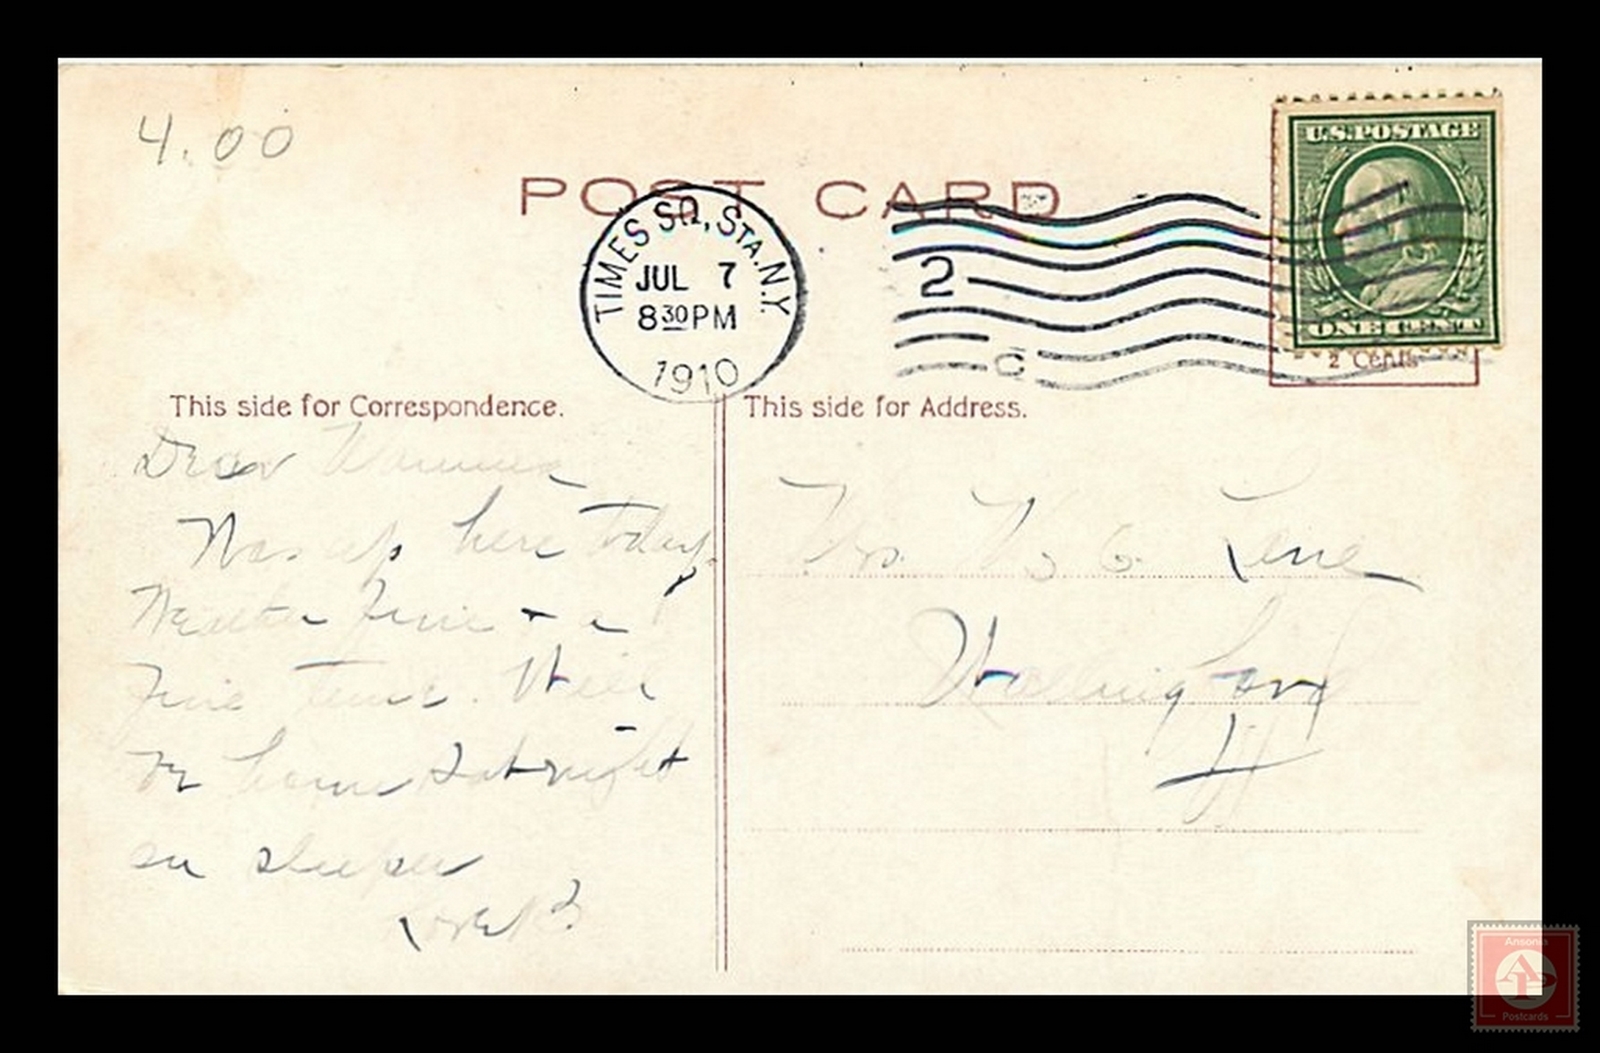 4.00
POST CARD
TIMES SQ. STA. N.Y.
JUL 7
8 30 PM
1910
2
C
U.S. POSTAGE
ONE CENT
2 Cents
This side for Correspondence.
This side for Address.
Dear
Was up here today.
Weather fine + a
fine time. Will
be home Sat night
on sleeper
Love
Mrs. W G Lane
Wallingford
Ansonia
AP
Postcards